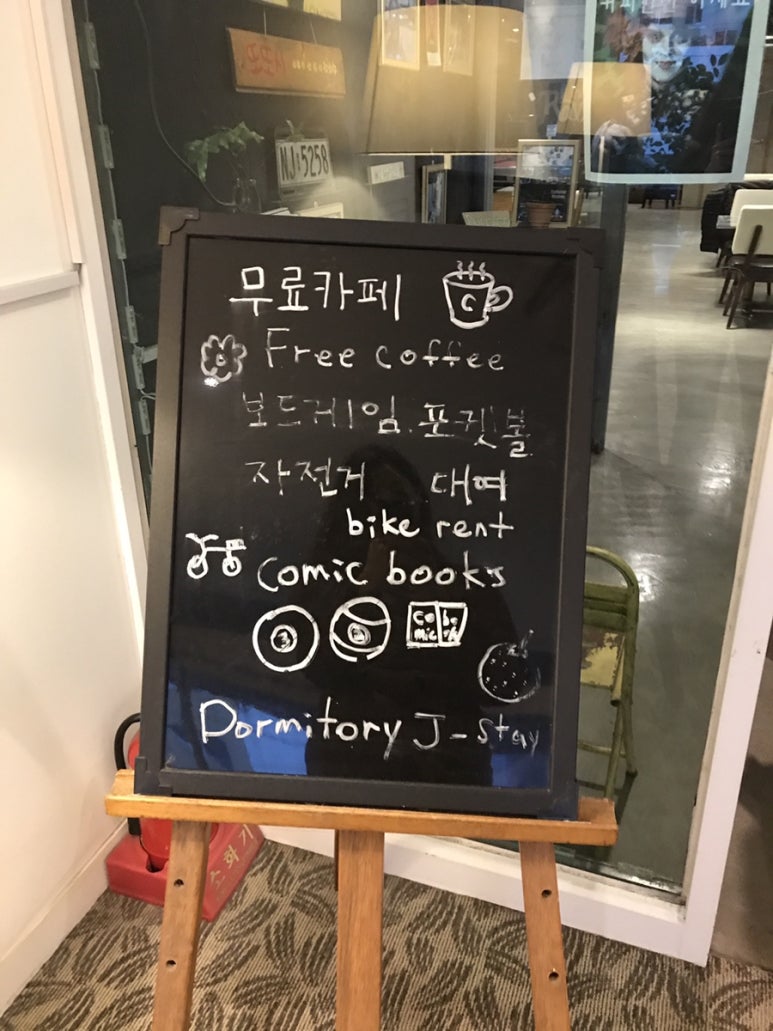 NJ 5258
무료카페
C
Free coffee
보드게임. 포켓볼
자전거 대여
bike rent
comic books
3
2
comic book
Dormitory J-Stay
소화기